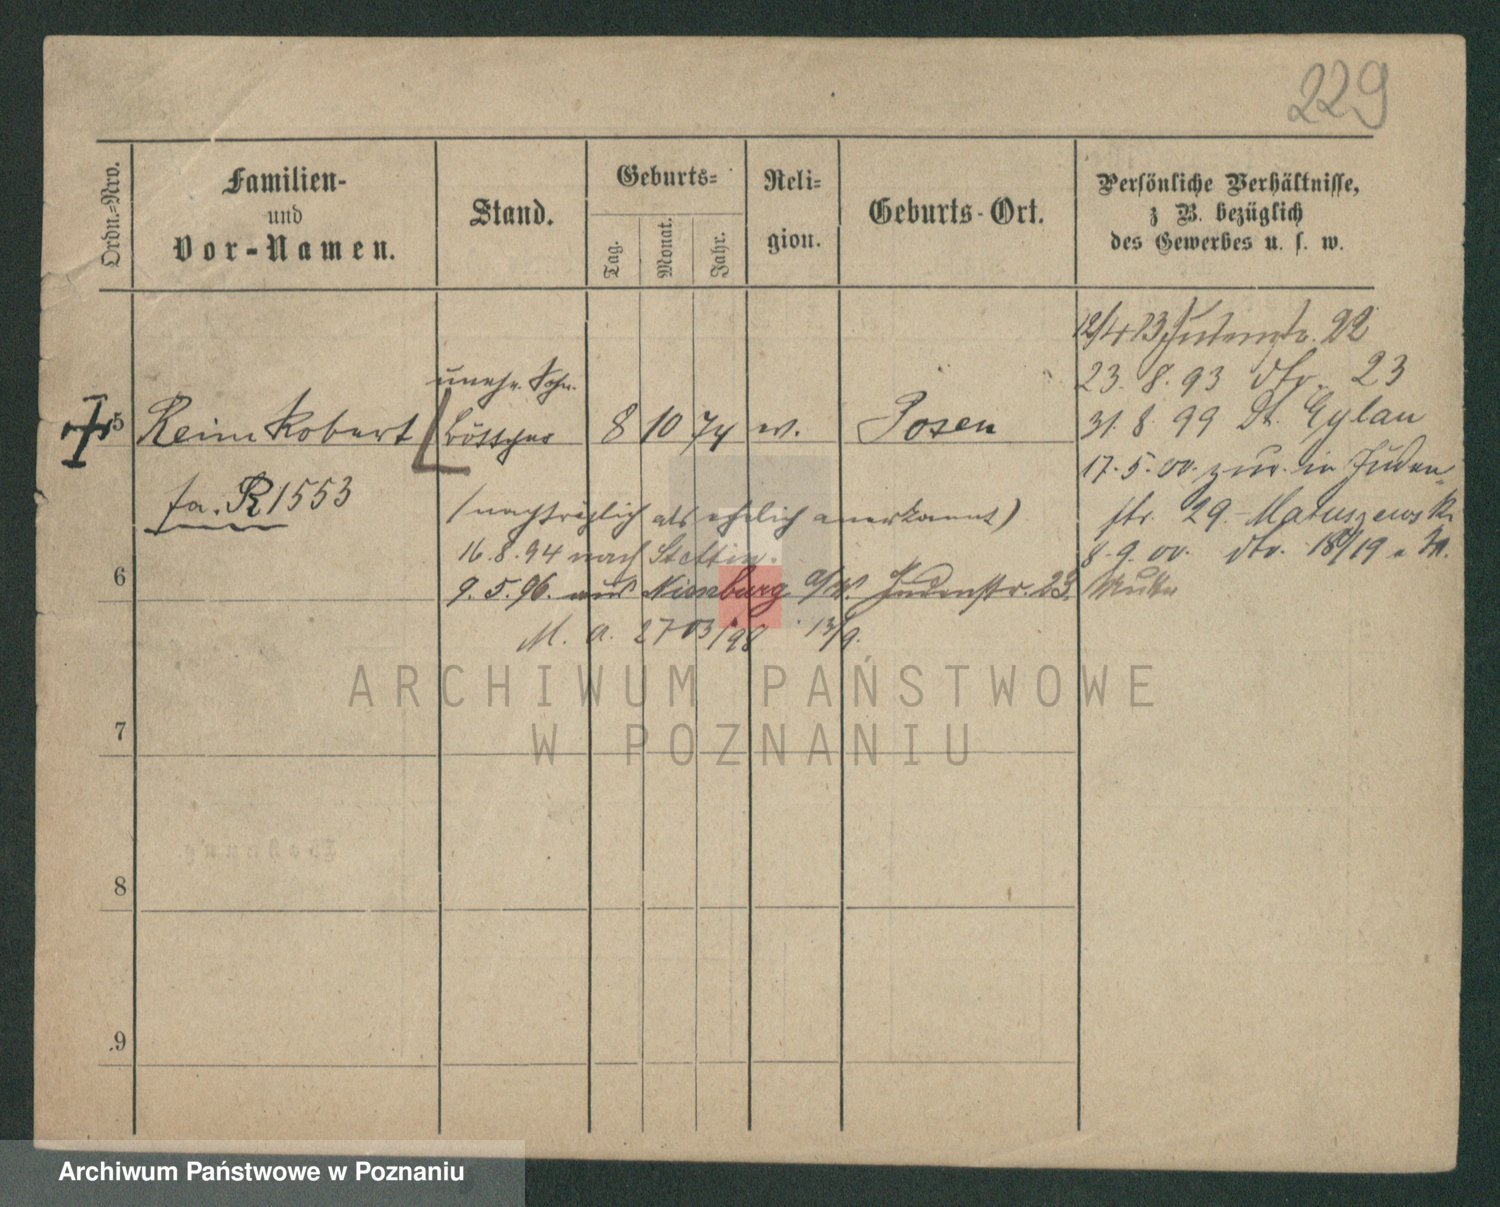 229
Ordn.-Nro.
Familien-
und
Vor-Namen.
Stand.
Geburts-
Tag.
Monat.
Jahr.
Reli-
gion.
Geburts-Ort.
Persönliche Verhältnisse,
z B. bezüglich
des Gewerbes u. s. w.
12/4 93 Judenstr. 22
23. 8. 93 dto. 23
31. 8. 99 Dt. Eylau
17. 5. 00. zur. in Juden-
str. 29. Matuszewski
8. 9. 00. dto. 18/19
unehe. Sohn.
5 Reim Robert Böttcher 8 10 74 ev. Posen
fa. R 1553
(nachträglich als ehelich anerkannt)
16. 8. 94 nach Stettin.
6
9. 5. 96. aus Nienburg a/W. Judenstr. 23.
M. A. 2703/98 13/9.
7
8
9
ARCHIWUM PAŃSTWOWE
W POZNANIU
Archiwum Państwowe w Poznaniu